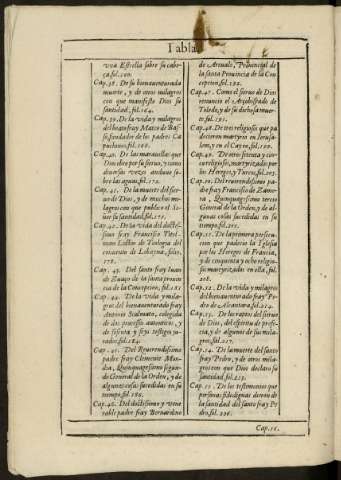 Tabla
vna Estrella sobre su cabe-
ça. fol.
Cap. 38. De su bienauenturada
muerte, y de otros milagros
con que manifesto Dios su
santidad, fol. 164.
Cap. 39. De la vida y milagros
del beato fray Mateo de Bas-
so, fundador de los padres Ca-
puchinos. fol.
Cap. 40. De las marauillas que
Dios obro por su sieruo, y como
diuersas vezes anduuo so-
bre las aguas. fol. 172.
Cap. 41. De la muerte del sier-
uo de Dios, y de muchos mi-
lagros con que
su santidad. fol.
Cap. 42. De la vida del doctis-
simo fray Francisco
Lector de Teologia del
conuento de fol.
178.
Cap. 43. Del santo fray Iuan
de Zuaço de la santa prouin-
cia de la Concepcion, fol. 181
Cap. 44. De la vida y mila-
gros del bienauenturado fray
Antonio colegida
de dos processos autenticos, y
de sesenta y seys testigos ju-
rados. fol. 184.
Cap. 45. Del Reuerendissimo
padre fray Clemente Mon-
Quinquagessimo segun-
do General de la Orden, y de
algunas cosas sucedidas en su
tiempo. fol. 189.
Cap. 46. Del doctissimo y vene
rable padre fray Bernardino
de Areualo, Prouincial de
la santa Prouincia de la Con
cepcion. fol. 192.
Cap. 47. Como el sieruo de Dios
renuncio el Arçobispado de
Toledo, y de su dichosa muer-
te. fol. 195.
Cap. 48. De tres religiosos que pa
decieron martyrio en Ierusa-
lem, y en el Cayro. fol.
Cap. 49. De otros treinta y con-
religiosos, martyrizados por
los Hereges, y Turcos. fol.
Cap. 50. Del reuerendissimo pa-
dre fray Francisco de Zamo-
ra, Quinquagessimo tercio
General de la Orden, y de al-
gunas cosas sucedidas en su
tiempo. fol. 205.
Cap. 51. De la primera persecu-
cion que padecio la Iglesia
por los Hereges de Francia,
y de cinquenta y ocho religio-
sos martyrizados en ella. fol.
208.
Cap. 52. De la vida y milagros
del bienauenturado fray Pe-
dro de Alcantara. fol. 214.
Cap. 53. De los raptos del sieruo
de Dios, del espiritu de profe-
cia, y de algunos de sus mila-
gros. fol. 217.
Cap. 54. De la muerte del santo
fray Pedro, y de otros mila-
gros con que Dios declaro su
santidad. fol. 223.
Cap. 55. De los testimonios que
personas fidedignas dieron de
la santidad del santo fray Pe
dro. fol. 226.
Cap. 56.